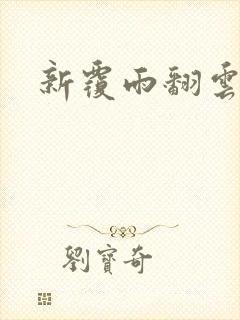 新覆雨翻雲
劉寶奇